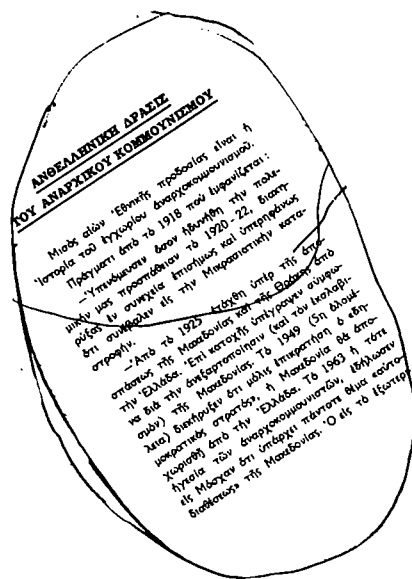 ΑΝΘΕΛΛΗΝΙΚΗ ΔΡΑΣΙΣ
ΤΟΥ ΑΝΑΡΧΙΚΟΥ ΚΟΜΜΟΥΝΙΣΜΟΥ
Μισὸς αἰὼν Ἐθνικῆς προδοσίας εἶναι ἡ
Ἱστορία τοῦ ἐγχωρίου ἀναρχοκομμουνισμοῦ.
Πράγματι ἀπὸ τὸ 1918 ποὺ ἐμφανίζεται:
—Ὑπενόμευσεν ὅσον ἠδυνήθη τὴν πολε-
μικήν μας προσπάθειαν τὸ 1920-22, διακη-
ρύξας ἐν συνεχείᾳ ἐπισήμως καὶ ὑπερηφάνως
ὅτι συνέβαλεν εἰς τὴν Μικρασιατικὴν κατα-
στροφήν.
—Ἀπὸ τὸ 1925 ἐτάχθη ὑπὲρ τῆς ἀπο-
σπάσεως τῆς Μακεδονίας καὶ τῆς Θράκης ἀπὸ
τὴν Ἑλλάδα. Ἐπὶ κατοχῆς ὑπέγραψεν σύμφω-
να διὰ τὴν ἀνεξαρτοποίησιν (καὶ τὸν ἐκσλαβι-
σμὸν) τῆς Μακεδονίας. Τὸ 1949 (5η ὁλομέ-
λεια) διεκήρυξεν ὅτι μόλις ἐπικρατήσῃ ὁ «δη-
μοκρατικὸς στρατός», ἡ Μακεδονία θὰ ἀπο-
χωρισθῇ ἀπὸ τὴν Ἑλλάδα. Τὸ 1963 ἡ τότε
ἡγεσία τῶν ἀναρχοκομμουνιστῶν, ἐδήλωσεν
εἰς Μόσχαν ὅτι ὑπάρχει πάντοτε θέμα «αὐτο-
διαθέσεως» τῆς Μακεδονίας. Ὁ εἰς τὸ ἐξωτερι-